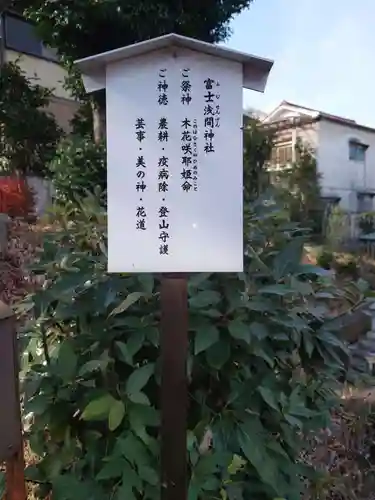 富士浅間神社
ふじせんげん
ご祭神 木花咲耶姫命
こはなさくやひめのみこと
ご神徳 農耕・疫病除・登山守護
芸事・美の神・花道